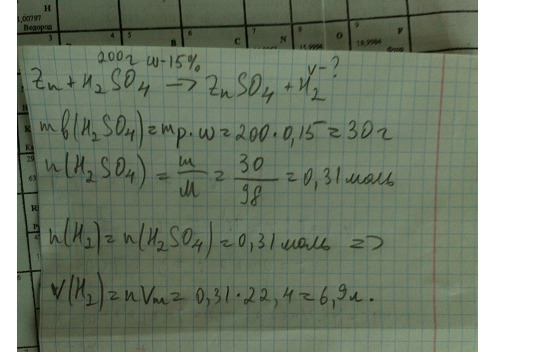 1,00797
Водород
Н
200г w-15%
v-?
Zn + H2SO4 → ZnSO4 + H2
mв(H2SO4)=mр·w=200·0,15=30г
n(H2SO4) = m/M = 30/98 = 0,31 моль
n(H2)=n(H2SO4)=0,31 моль =>
V(H2)=nVm= 0,31·22,4=6,9л.